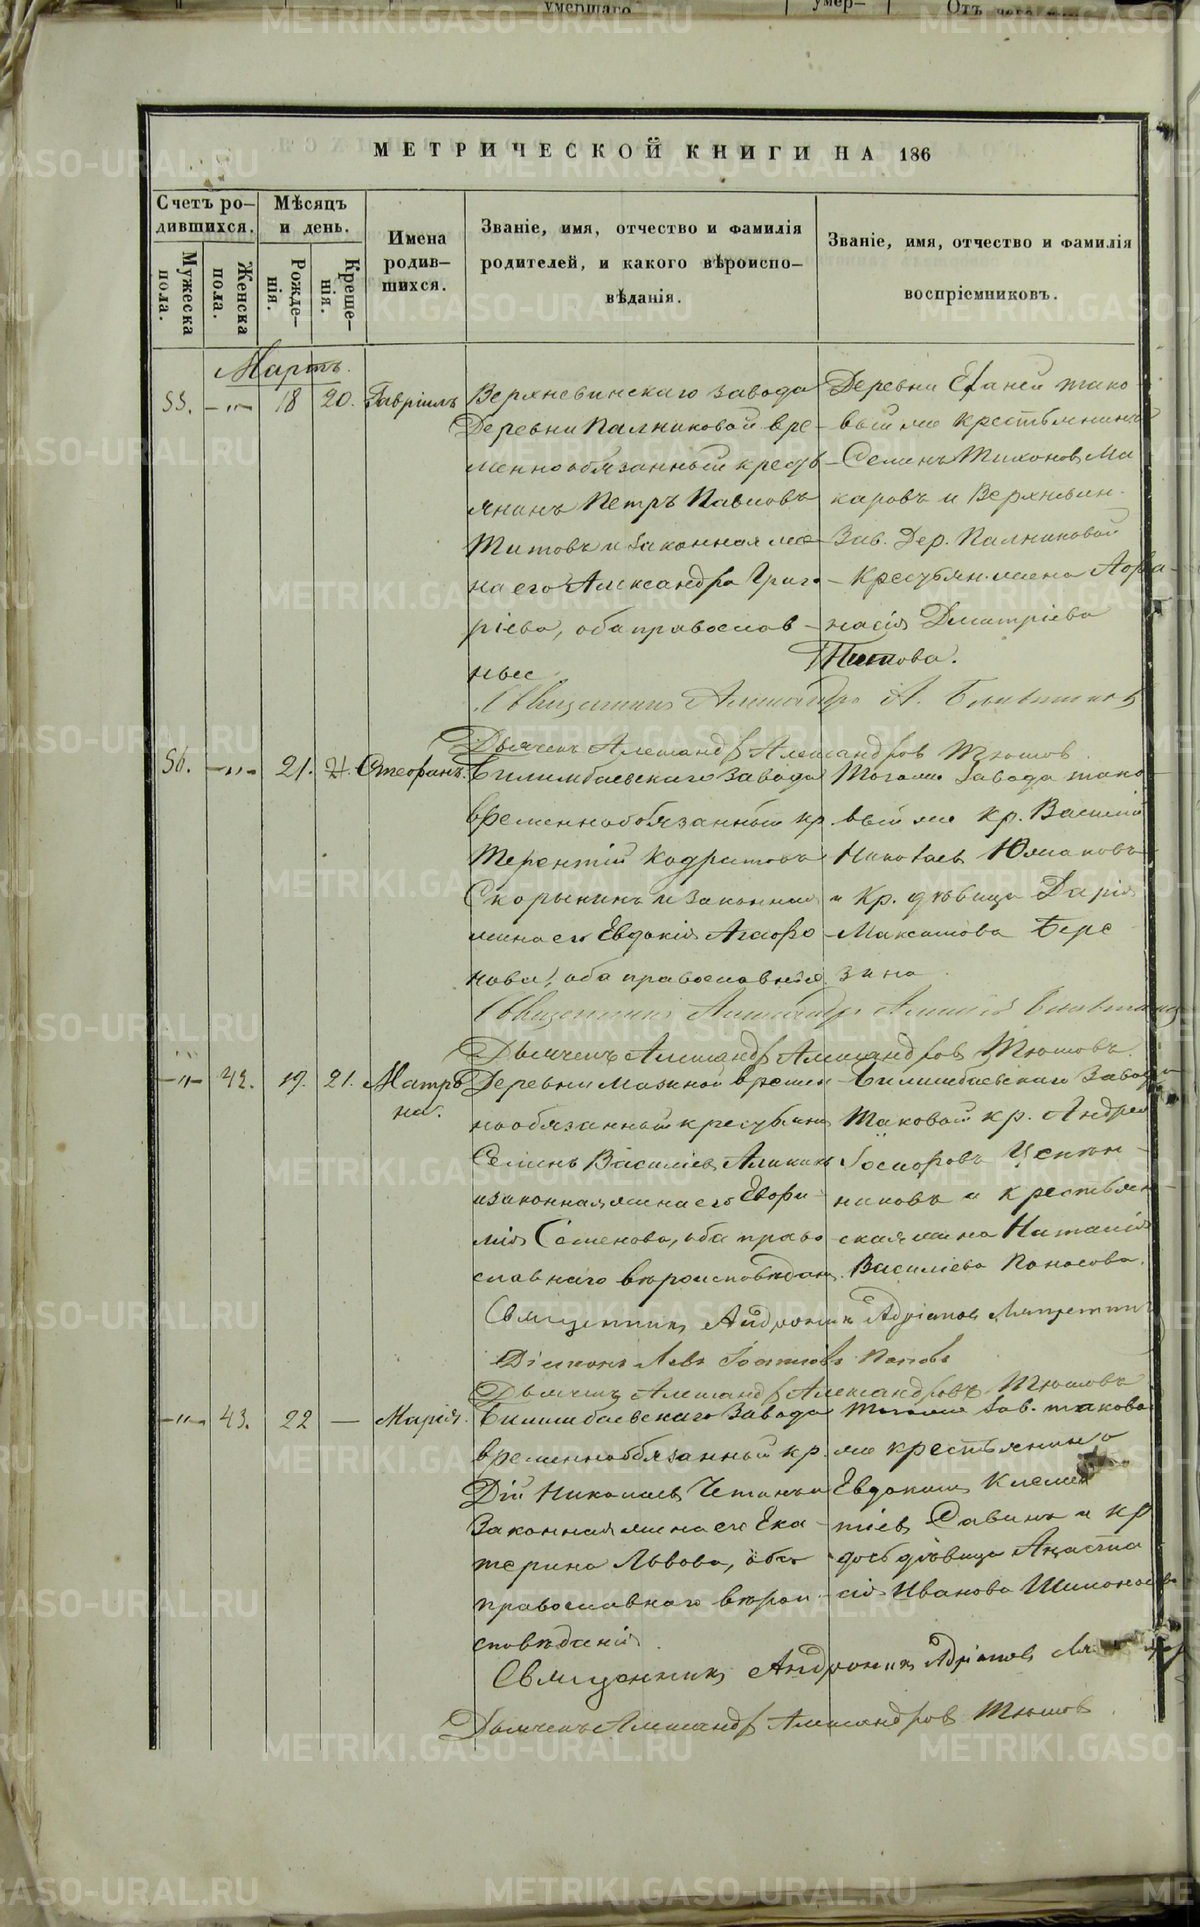 умершаго
умер-
Отъ чего
МЕТРИЧЕСКОЙ КНИГИ НА 186
Счетъ родившихся.
Мѣсяцъ и день.
Мужеска пола.
Женска пола.
Рожденія.
Крещенія.
Имена родившихся.
Званіе, имя, отчество и фамилія родителей, и какого вѣроисповѣданія.
Званіе, имя, отчество и фамилія воспріемниковъ.
Мартъ.
55. -"- 18 20. Гавріилъ
Верхневинскаго завода
Деревни Палниковой вре-
меннообязанный кресть-
янинъ Петръ Павловъ
Титовъ и законная же-
на его Александра Григо-
ріева, оба православ-
ные
Деревни тако-
вый же крестьянинъ
Семенъ Тихоновъ Ма
каровъ и Верхневин.
Зав. Дер. Палниковой
Крестьян. жена
Дмитріева
Титова.
Священникъ Александръ А.
Дьячекъ Александръ Александровъ Тюшовъ
56. -"- 21. Стефанъ.
Билимбаевскаго завода
временнообязанный кр.
Терентій
Скорынинъ и законная
жена его Евдокія
оба православныя
Тогоже Завода тако-
вый же кр. Василій
Николаевъ Юмаковъ
и Кр. дѣвица Дарія
Максимова Бере
зина
Священникъ Александръ
Дьячекъ Александръ Александровъ Тюшовъ.
-"- 42. 19. 21. Матрѣ
на.
Деревни времен-
нообязанный крестьянинъ
Семенъ Василіевъ
и законная жена его Евфи-
мія Семенова, оба право
славнаго вѣроисповѣдан.
Билимбаевскаго Завода
Таковой кр. Андрей
и крестьян-
ская жена Наталія
Василіева
Священникъ Андроникъ Адріановъ
Діаконъ Левъ Поповъ
Дьячекъ Александръ Александровъ Тюшовъ
-"- 43. 22 — Марія.
Билимбаевскаго Завода
временнообязанный кр.
Дій Николаевъ
Законная жена его Ека-
терина Львова, оба
православнаго вѣрои-
сповѣданія.
Тогоже Зав. таково
же крестьянина
Евдокимъ Клемен
тіевъ Савинъ и кр
дочь дѣвица Анаста
сія Иванова
Священникъ Андроникъ Адріановъ
Дьячекъ Александръ Александровъ Тюшовъ
METRIKI.GASO-URAL.RU